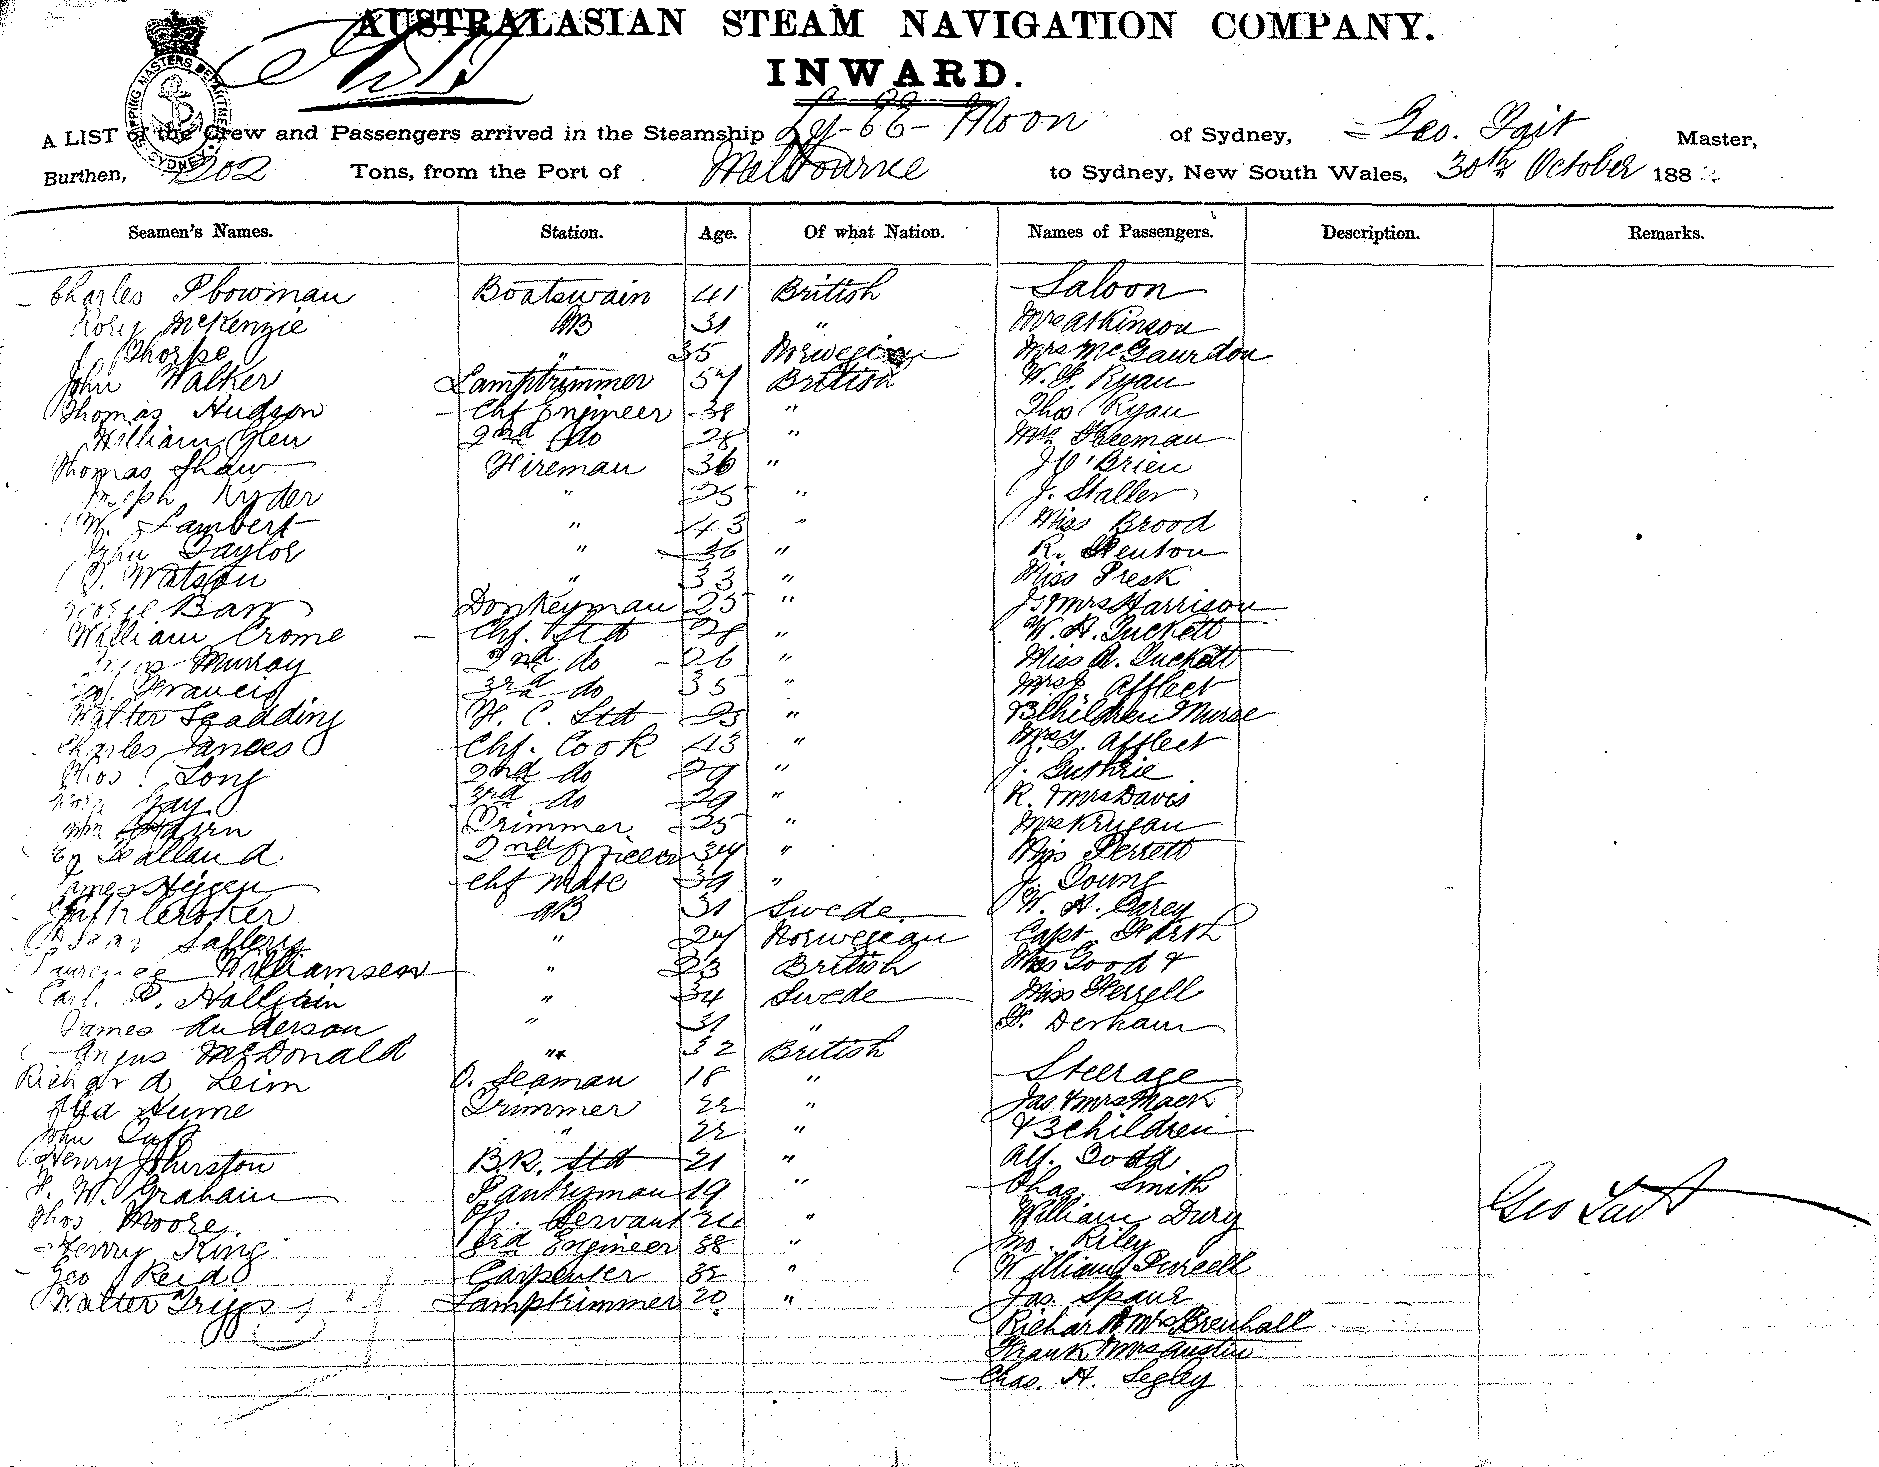 AUSTRALASIAN STEAM NAVIGATION COMPANY.
INWARD.
SHIPPING MASTERS DEPARTMENT SYDNEY
A LIST of the Crew and Passengers arrived in the Steamship Ly-EE-Moon of Sydney, Geo. Tait Master,
Burthen, 1202 Tons, from the Port of Melbourne to Sydney, New South Wales, 30th October 188
Seamen's Names. Station. Age. Of what Nation. Names of Passengers. Description. Remarks.
Charles Plowman Boatswain 41 British Saloon
Rory McKenzie AB 31 " Mrs Atkinson
Thorpe " 35 Norwegian Mrs McGaurdon
John Walker Lamptrimmer 57 British W. F. Ryan
Thomas Hudson Chf Engineer 38 " Thos Ryan
William Glen 2nd do 28 " Mrs Freeman
Thomas Shaw Fireman 36 " J O'Brien
Joseph Ryder " 25 " J. Staller
W. Lambert " 43 " Miss Brood
John Taylor " 36 " R. Fenton
J. Watson " 33 " Miss Presk
George Barr Donkeyman 25 " J & Mrs Harrison
William Crome Chf. Std 28 " W. H. Tuckett
Murray 2nd do 26 " Miss A. Tuckett
Francis 3rd do 35 " Mrs J. Afflect
Walter Scadding F. C. Std 25 " 3 Children Nurse
Charles Jances Chf. Cook 43 " Mrs J. Afflect
Thos. Long 2nd do 29 " J. Guthrie
Gay 3rd do 29 " R. & Mrs Davis
Wm Trimmer 25 " Mrs Krugan
Falland 2nd Officer 34 " Miss Perrett
James Chf Mate 39 " J. Young
AB 31 Swede W. H. Carey
" 27 Norwegian Capt. Firth
Laurence Williamsen " 23 British Miss Good &
Carl. " 34 Swede Miss Ferrell
James Anderson " 31 " F. Derham
Angus McDonald " 32 British
Richard Leim O. Seaman 18 " Steerage
Alfd Hume Trimmer 22 " Jas & Mrs Mack
John " 22 " & 3 Children
Henry Thurston B.R. Std 21 " Alf. Todd
F. W. Graham Pantryman 19 " Chas. Smith
Thos Moore Servant " William Dury
Henry King 3rd Engineer 38 " Jno. Riley
Geo Reid Carpenter 32 " William Purcell
Walter Tripps Lamptrimmer 20 " Jas. Spaur
Richard & Mrs Brenhall
Frank & Mrs Austin
Chas. H. Segley
Geo Tait